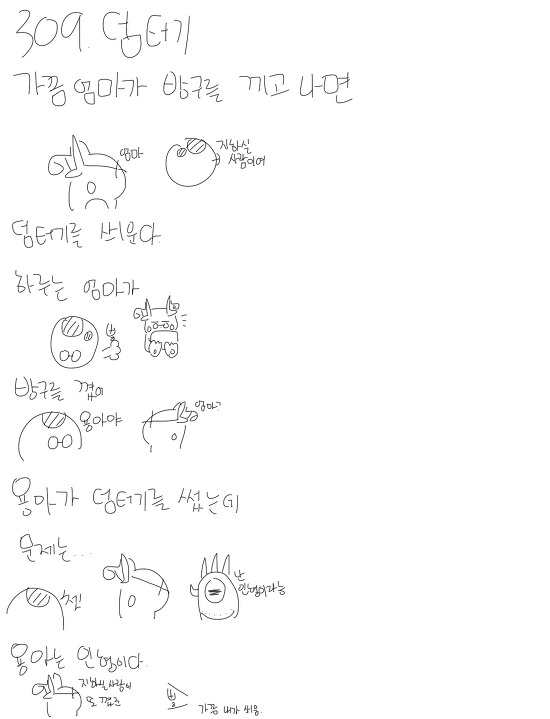 309. 덤터기
가끔 엄마가 방구를 끼고 나면
엄마
지하실
사람이여
덤터기를 씌운다.
하루는 엄마가
뿡
방구를 꼈어
용아야
엄마?
용아가 덤터기를 썼는데
문제는...
쳇
난
인형이라능
용아는 인형이다.
지하실 사람이
또 꼈군
뿡
가끔 내가 씌움.